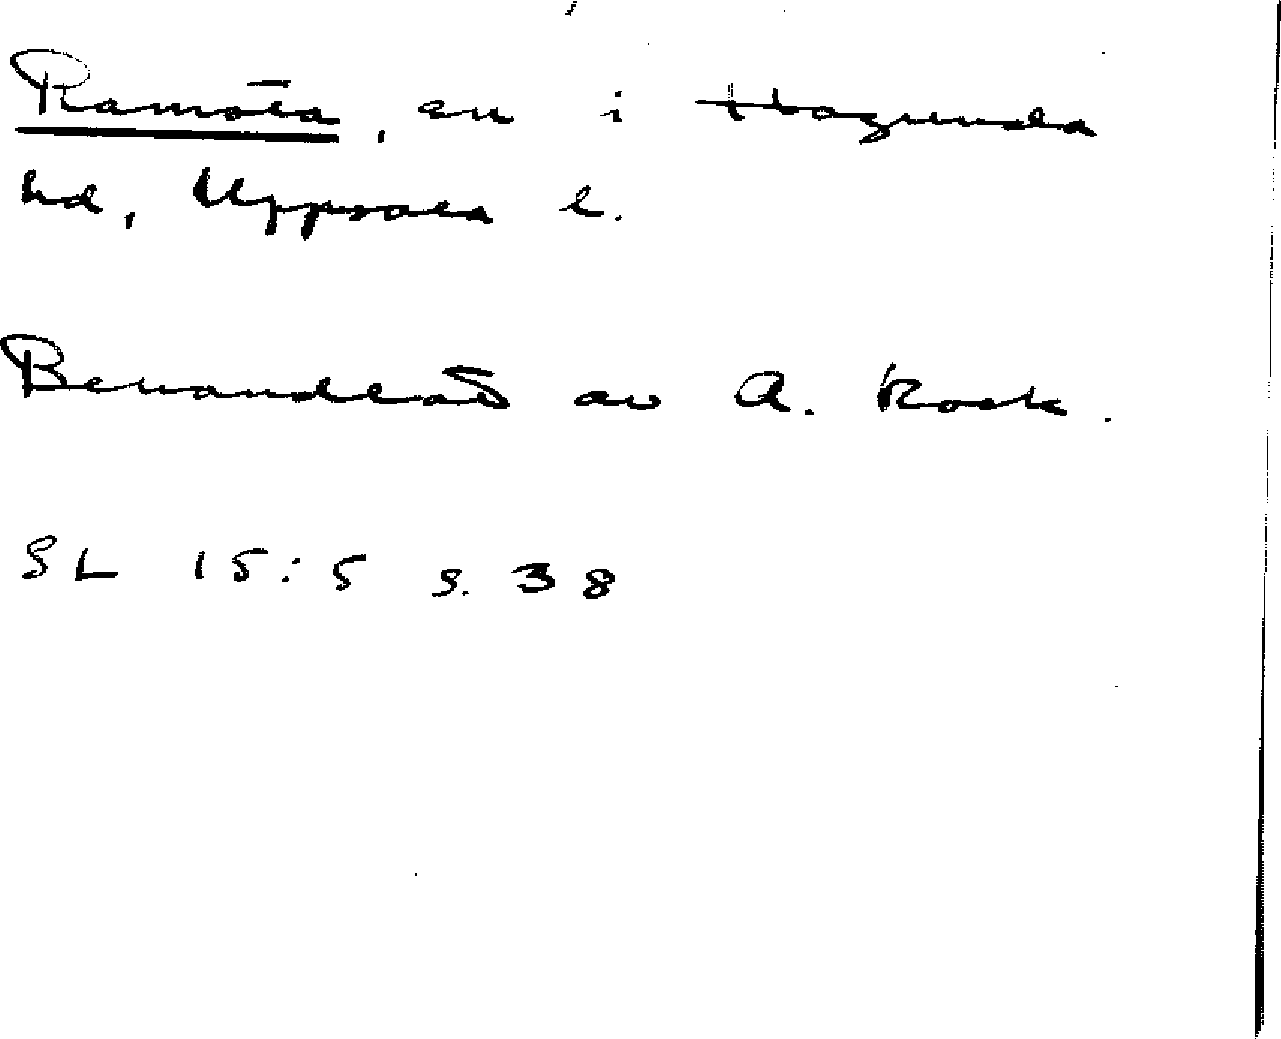 Ramsta, sn i Hagunda
hd, Uppsala l.
Behandlat av A. Kock.
SL 15:5 s. 38